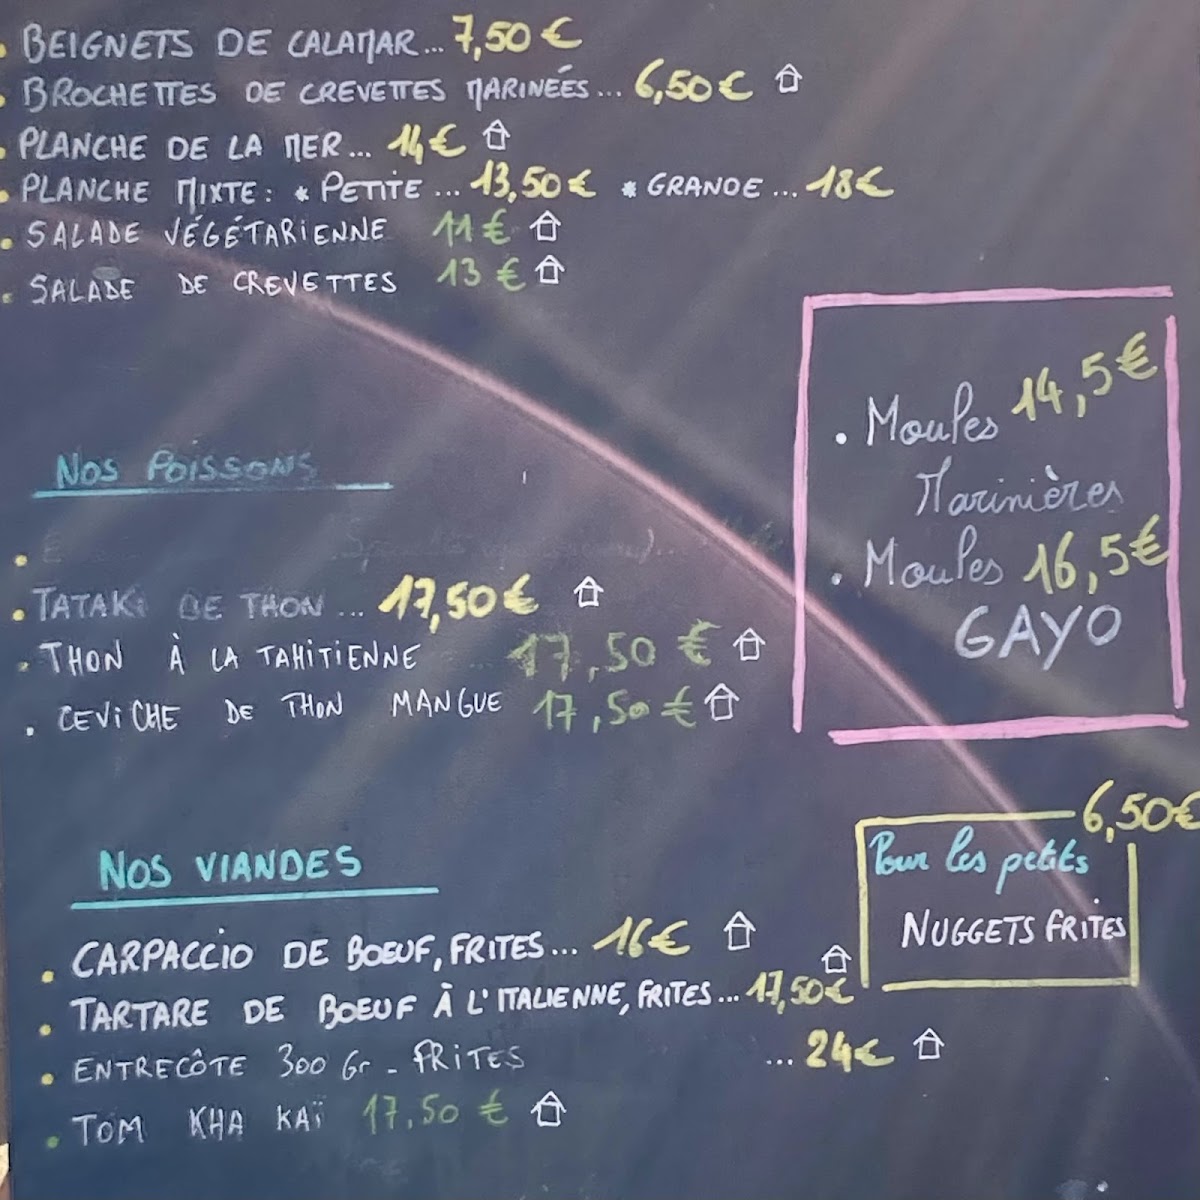 • BEIGNETS DE CALAMAR... 7,50 €
• BROCHETTES DE CREVETTES MARINÉES... 6,50 €
• PLANCHE DE LA MER... 14 €
• PLANCHE MIXTE: * PETITE... 13,50 € * GRANDE... 18 €
• SALADE VÉGÉTARIENNE 11 €
• SALADE DE CREVETTES 13 €
NOS POISSONS
• TATAKI DE THON... 17,50 €
• THON À LA TAHITIENNE ... 17,50 €
• CEVICHE DE THON MANGUE 17,50 €
• Moules 14,5 €
Marinières
• Moules 16,5 €
GAYO
NOS VIANDES
• CARPACCIO DE BOEUF, FRITES... 16 €
• TARTARE DE BOEUF À L'ITALIENNE, FRITES... 17,50 €
• ENTRECÔTE 300 Gr - FRITES ... 24 €
• TOM KHA KAÏ 17,50 €
6,50 €
Pour les petits
NUGGETS FRITES